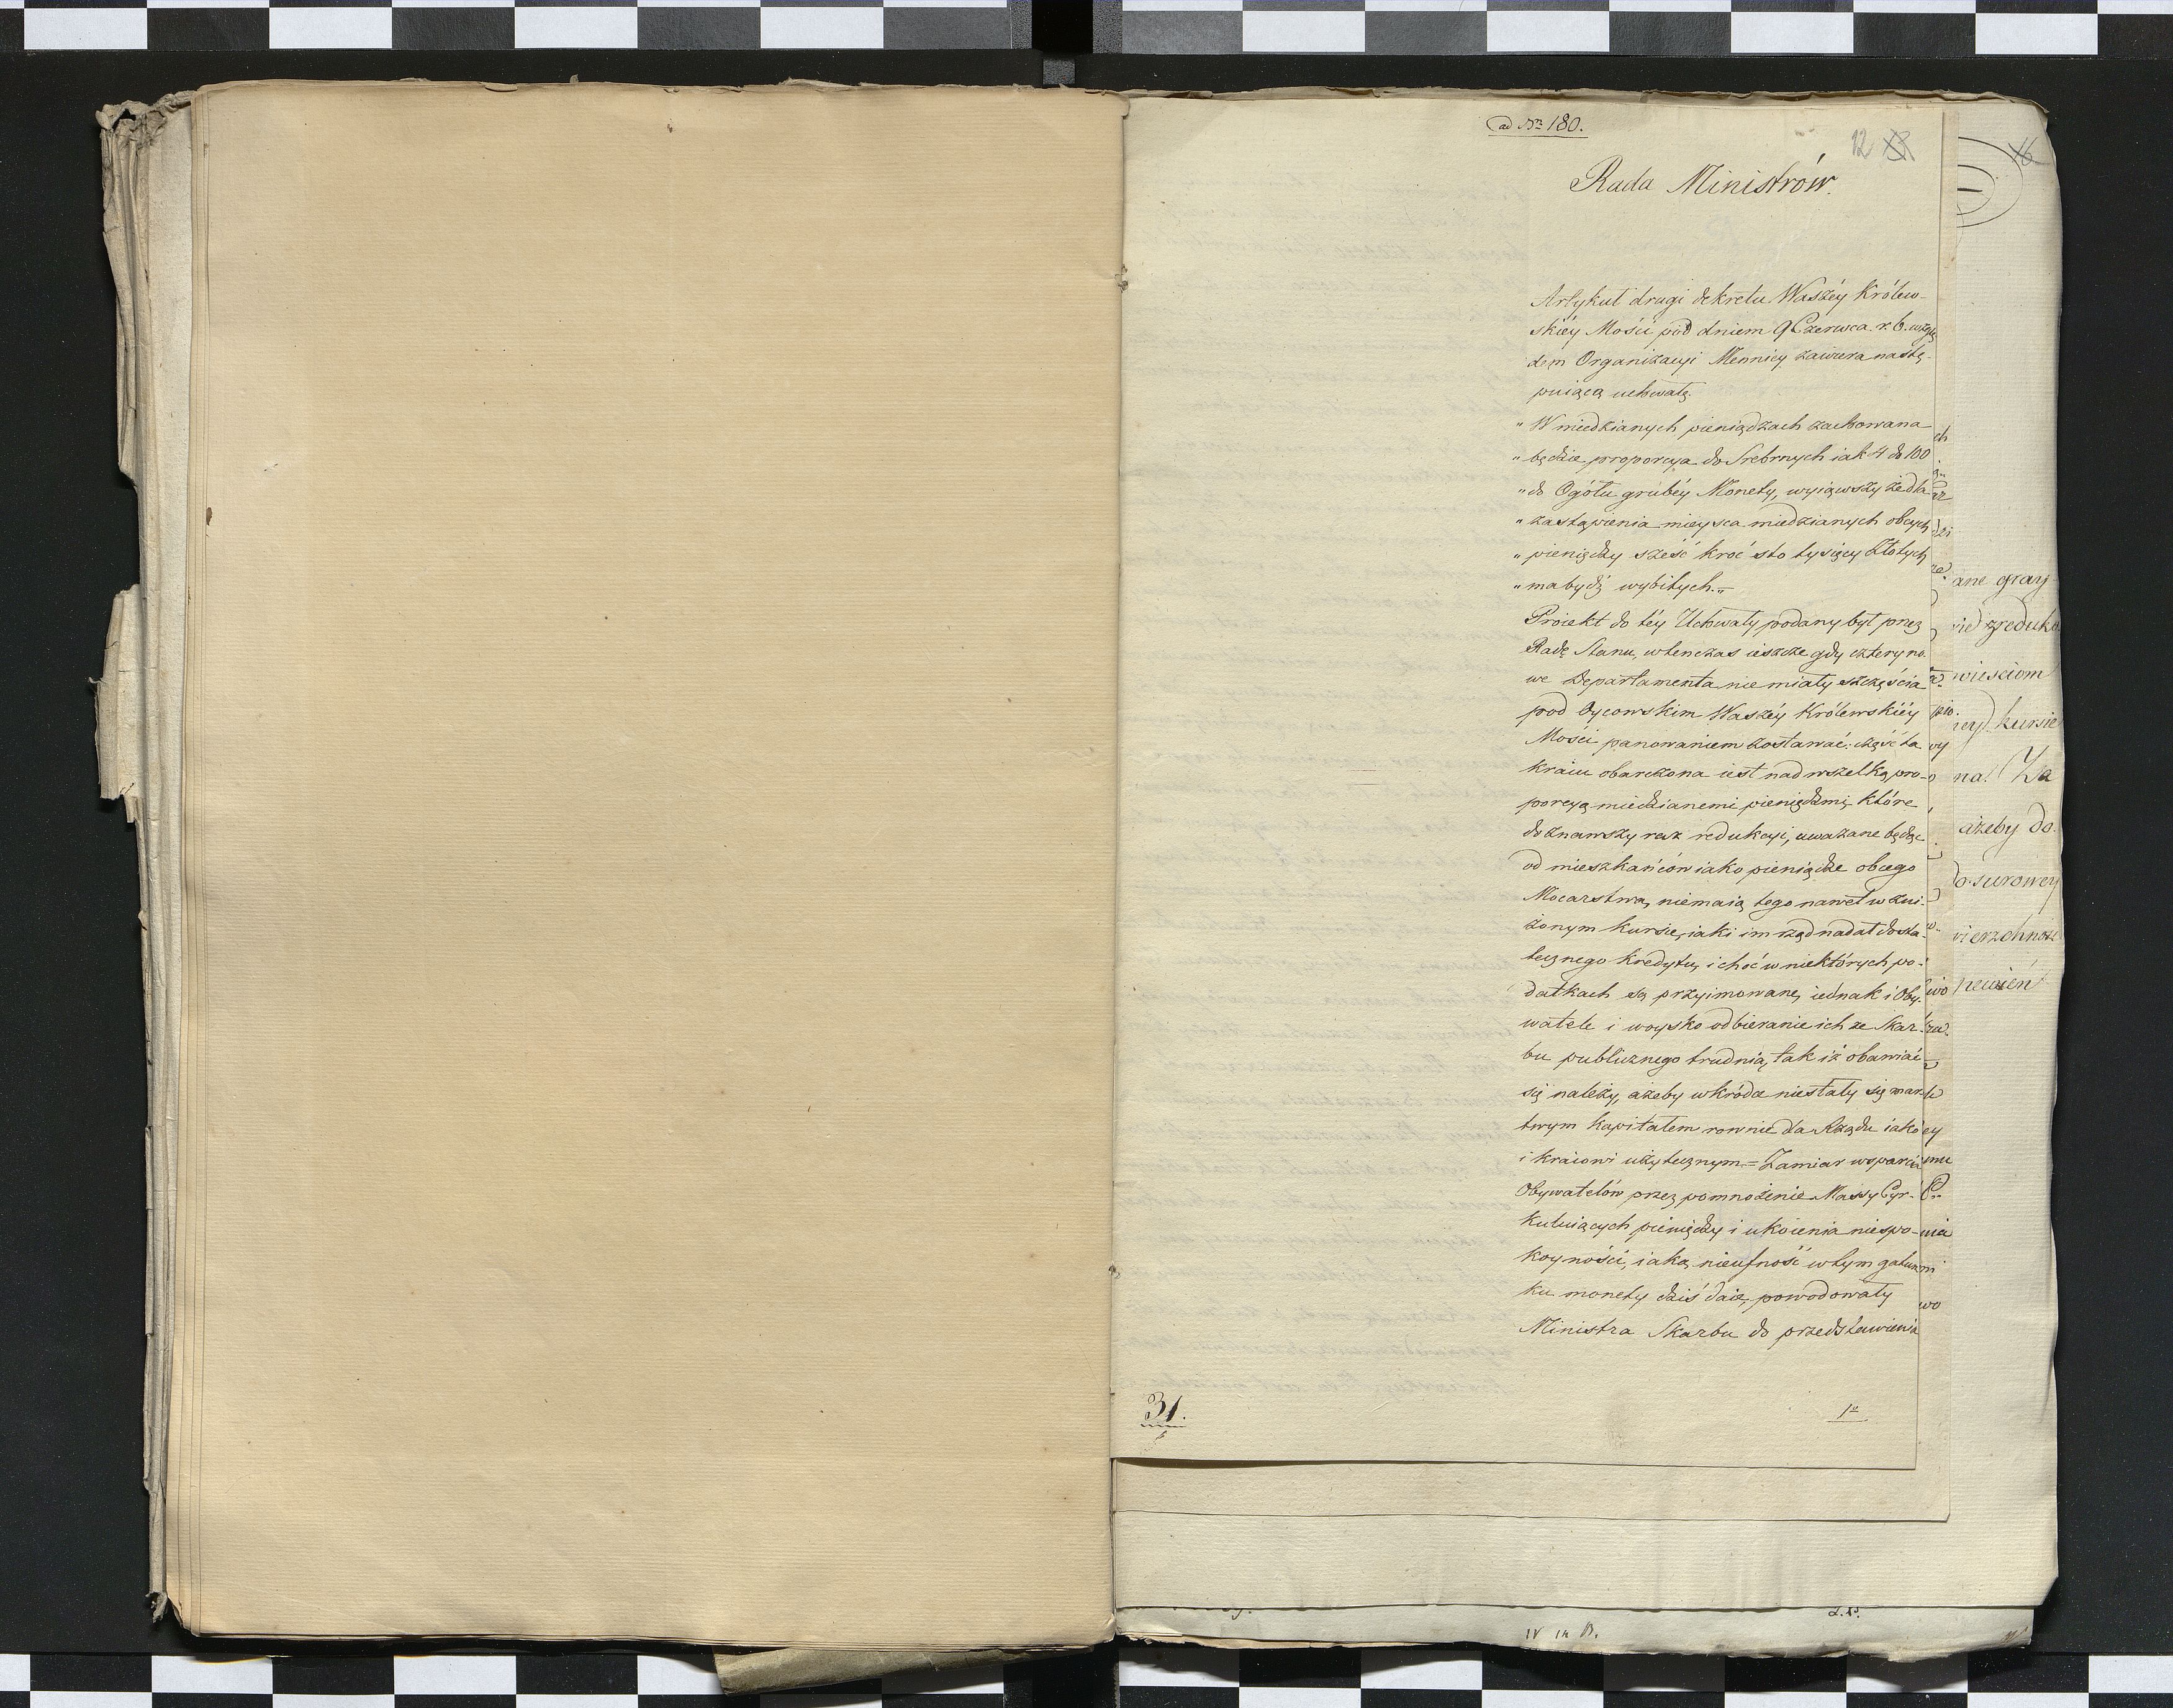 ad Nr̲o̲ 180.
12
Rada Ministrów.
Artykuł drugi dekretu Waszéy Królew-
skiéy Mości pod dniem 9 Czerwca r. b. wzglę
dem Organizacyi Mennicy zawiera nastę-
puiącą uchwałę.
" W miedzianych pieniądzach zachowana
" będzie proporcya do Srebrnych iak 4 do 100
" do Ogółu grubéy Monety, wyiąwszy że dla
" zastąpienia mieysca miedzianych obcych
" pieniędzy sześć kroć sto tysięcy Złotych
" ma bydź wybitych."=
Proiekt do téy Uchwały podany był przez
Radę Stanu, wtenczas ieszcze gdy cztery no-
we Departamenta nie miały szczęścia
pod Oycowskim Waszéy Królewskiéy
Mości panowaniem zostawać: część ta
kraiu obarczona iest nad wszelką pro-
porcyą miedzianemi pieniędzmi, które
doznawszy raz redukcyi, uważane będąc
od mieszkańców iako pieniądze obcego
Mocarstwa, niemaią tego nawet w zni-
żonym kursie, iaki im rząd nadał dosta-
tecznego kredytu, i choć w niektórych po-
datkach są przyimowane, iednak i Oby-
watele i woysko odbieranie ich ze Skar-
bu publicznego trudnią, tak iż obawiać
się należy, ażeby wkródce niestały się mar-
twym kapitałem rownie dla Rządu iako
i kraiowi użytecznym.= Zamiar wsparcia
Obywatelów przez pomnożenie Massy Cyr-
kuluiących pieniędzy i ukoienia niespo-
koyności, iaką nieufność w tym gatun
ku monety dziś daie, powodowały
Ministra Skarbu do przedstawienia
31.
1º
16
ane gray
wieściom
kursie
na! Za
ażeby do
do surowey
wierzchność